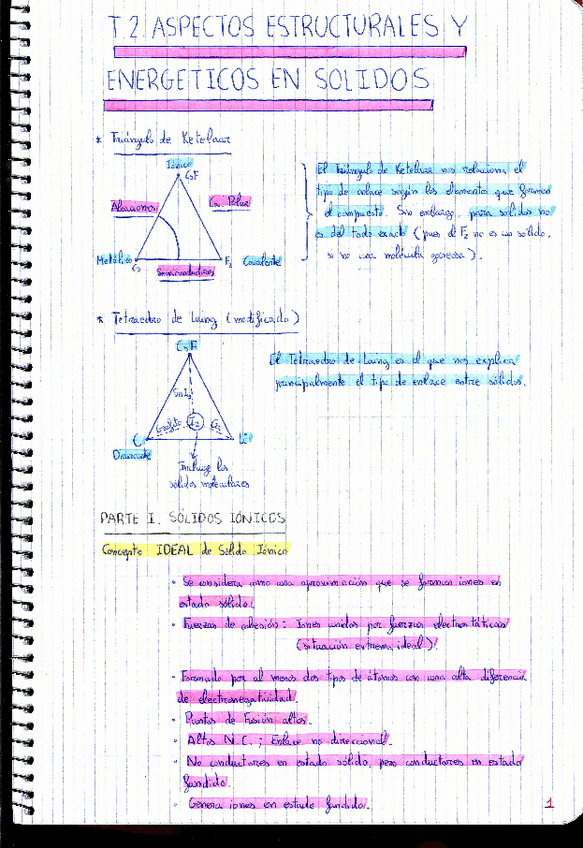 T.2 ASPECTOS ESTRUCTURALES Y
ENERGETICOS EN SOLIDOS
* Triángulo de Ketelaar
Iónico
CsF
Aleaciones
Cov. Polar
Metálico
Cs
F₂
Covalente
Semiconductores
El triángulo de Ketelaar nos relaciona el
tipo de enlace según los elementos que forman
el compuesto. Sin embargo, para sólidos no
es del todo exacto (pues el F₂ no es un sólido,
si no una molécula gaseosa).
* Tetraedro de Laing (modificado)
CsF
SnI₄
Grafito
I₂
C
Li
Diamante
Incluye los
sólidos moleculares
El Tetraedro de Laing es el que nos explica
principalmente el tipo de enlace entre sólidos.
PARTE I. SÓLIDOS IÓNICOS
Concepto IDEAL de Sólido Iónico
· Se considera como una aproximación que se forman iones en
estado sólido.
· Fuerzas de cohesión: Iones unidos por fuerzas electrostáticas
(situación extrema ideal).
· Formado por al menos dos tipos de átomos con una alta diferencia
de electronegatividad.
· Puntos de Fusión altos.
· Altos N.C.; Enlace no direccional.
· No conductores en estado sólido, pero conductores en estado
fundido.
· Genera iones en estado fundido.
1